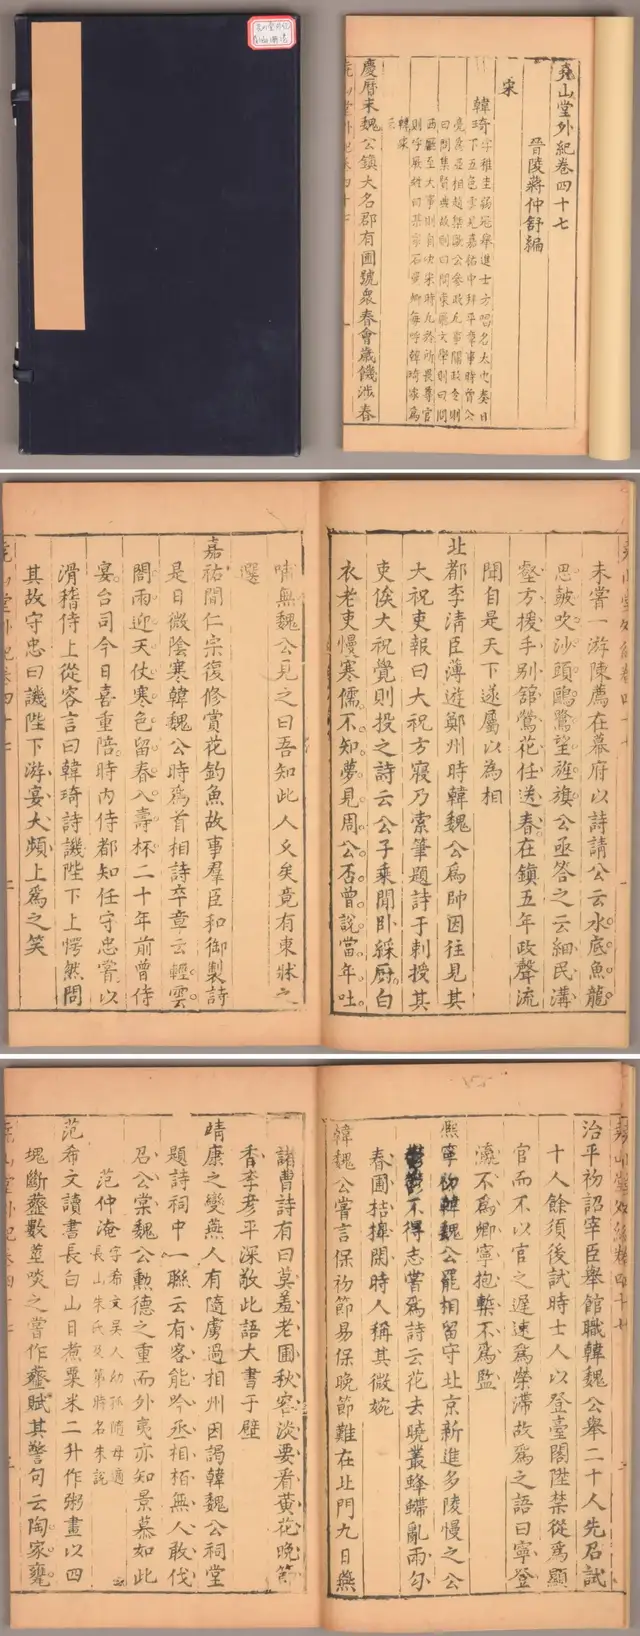 堯山堂外紀卷四十七
晉陵蔣仲舒編
宋
韓琦
慶曆末魏公鎮大名郡有圃號衆春會歲饑涉春
未嘗一游陳薦在幕府以詩請公云水底魚龍
思皷吹沙頭鷗鷺望旌旗公亟答之云細民溝
壑方援手別舘鶯花任送春在鎮五年政聲流
聞自是天下遂屬以為相
北都李清臣薄遊鄭州時韓魏公為帥因往見其
大祝吏報曰大祝方寢乃索筆題詩于刺授其
吏俟大祝覺則投之詩云公子乘閒臥綵厨白
衣老吏慢寒儒不知夢見周公否曾說當年吐
哺無魏公見之曰吾知此人久矣竟有東牀之
選
嘉祐間仁宗復修賞花釣魚故事羣臣和御製詩
是日微陰寒韓魏公時爲首相詩卒章云輕雲
閣雨迎天仗寒色留春入壽杯二十年前曾侍
宴台司今日喜重陪時內侍都知任守忠嘗以
滑稽侍上從容言曰韓琦詩譏陛下上愕然問
其故守忠曰譏陛下游宴太頻上爲之笑
治平初詔宰臣舉館職韓魏公舉二十人先召試
十人餘須後試時士人以登臺閣陞禁從爲顯
官而不以官之遲速爲榮滯故爲之語曰寧登
瀛不爲卿寧抱槧不爲監
熈寧初韓魏公罷相留守北京新進多陵慢之公
鬱鬱不得志嘗爲詩云花去曉叢蜂蝶亂雨勻
春圃桔槹閑時人稱其微婉
韓魏公嘗言保初節易保晚節難在北門九日燕
諸曹詩有曰莫羞老圃秋容淡要看黃花晚節
香李彦平深敬此語大書于壁
靖康之變燕人有隨虜過相州因謁韓魏公祠堂
題詩祠中一聯云有客能吟丞相栢無人敢伐
召公棠魏公勲德之重而外夷亦知景慕如此
范仲淹字希文吳人幼孤隨母適
長山朱氏及第時名朱說
范希文讀書長白山日煮粟米二升作粥畫以四
塊斷虀數莖啖之嘗作虀賦其警句云陶家甕